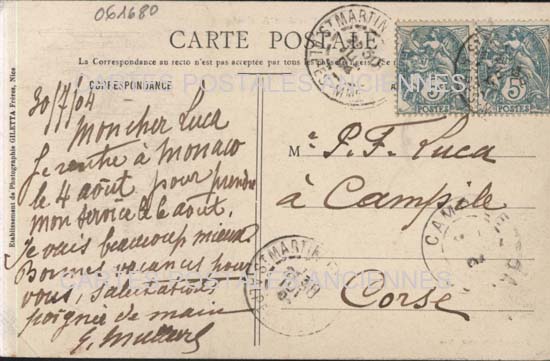 061680
CARTE POSTALE
La Correspondance au recto n'est pas acceptée par tous les
CORRESPONDANCE
CARTES POSTALES ANCIENNES
30/7/04
Mon cher Luca
Je rentre à Monaco
le 4 août pour prendre
mon service le 6 août.
Je vais beaucoup mieux.
Bonnes vacances pour
vous, salutations,
poignée de main
M r P. F. Luca
à Campile
Corse
CARTES POSTALES ANCIENNES
Etablissement de Photographie GILETTA Frères, Nice
ST MARTIN
5
POSTES
5
POSTES
ST MARTIN
CAM